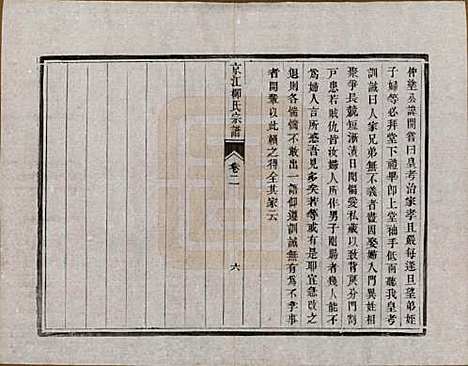 仲塗公諱開嘗曰皇考治家孝且嚴每逢旦望弟姪
子婦等必拜堂下禮畢即上堂袖手低南聽我皇考
訓誡曰人家兄弟無不義者盡因娶婦入門異姓相
聚爭長競短漸漬日聞偏愛私藏以致背戾分門
戸患若賊仇皆汝婦人所作男子剛腸者幾人能不
為婦人言所惑吾見多矣若等或有是耶宜急改之
退則各惴惴不敢出一語仰遵訓誡無有不孝事
者開輩以此賴之得全其家云
京江柳氏宗譜
卷二
六